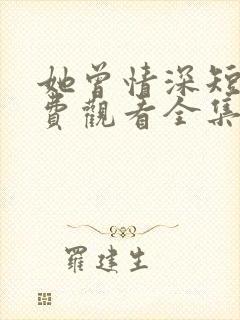 她曾情深短
費觀看全集
羅建生